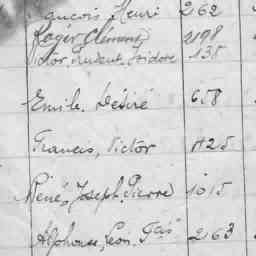 ançois Henri 262
Roger Clément 2198
Flor, Prudent, Isidore 135
Emile Désiré 658
Francis, Victor 1125
René, Joseph, Pierre 1015
Alphonse, Léon, 2163